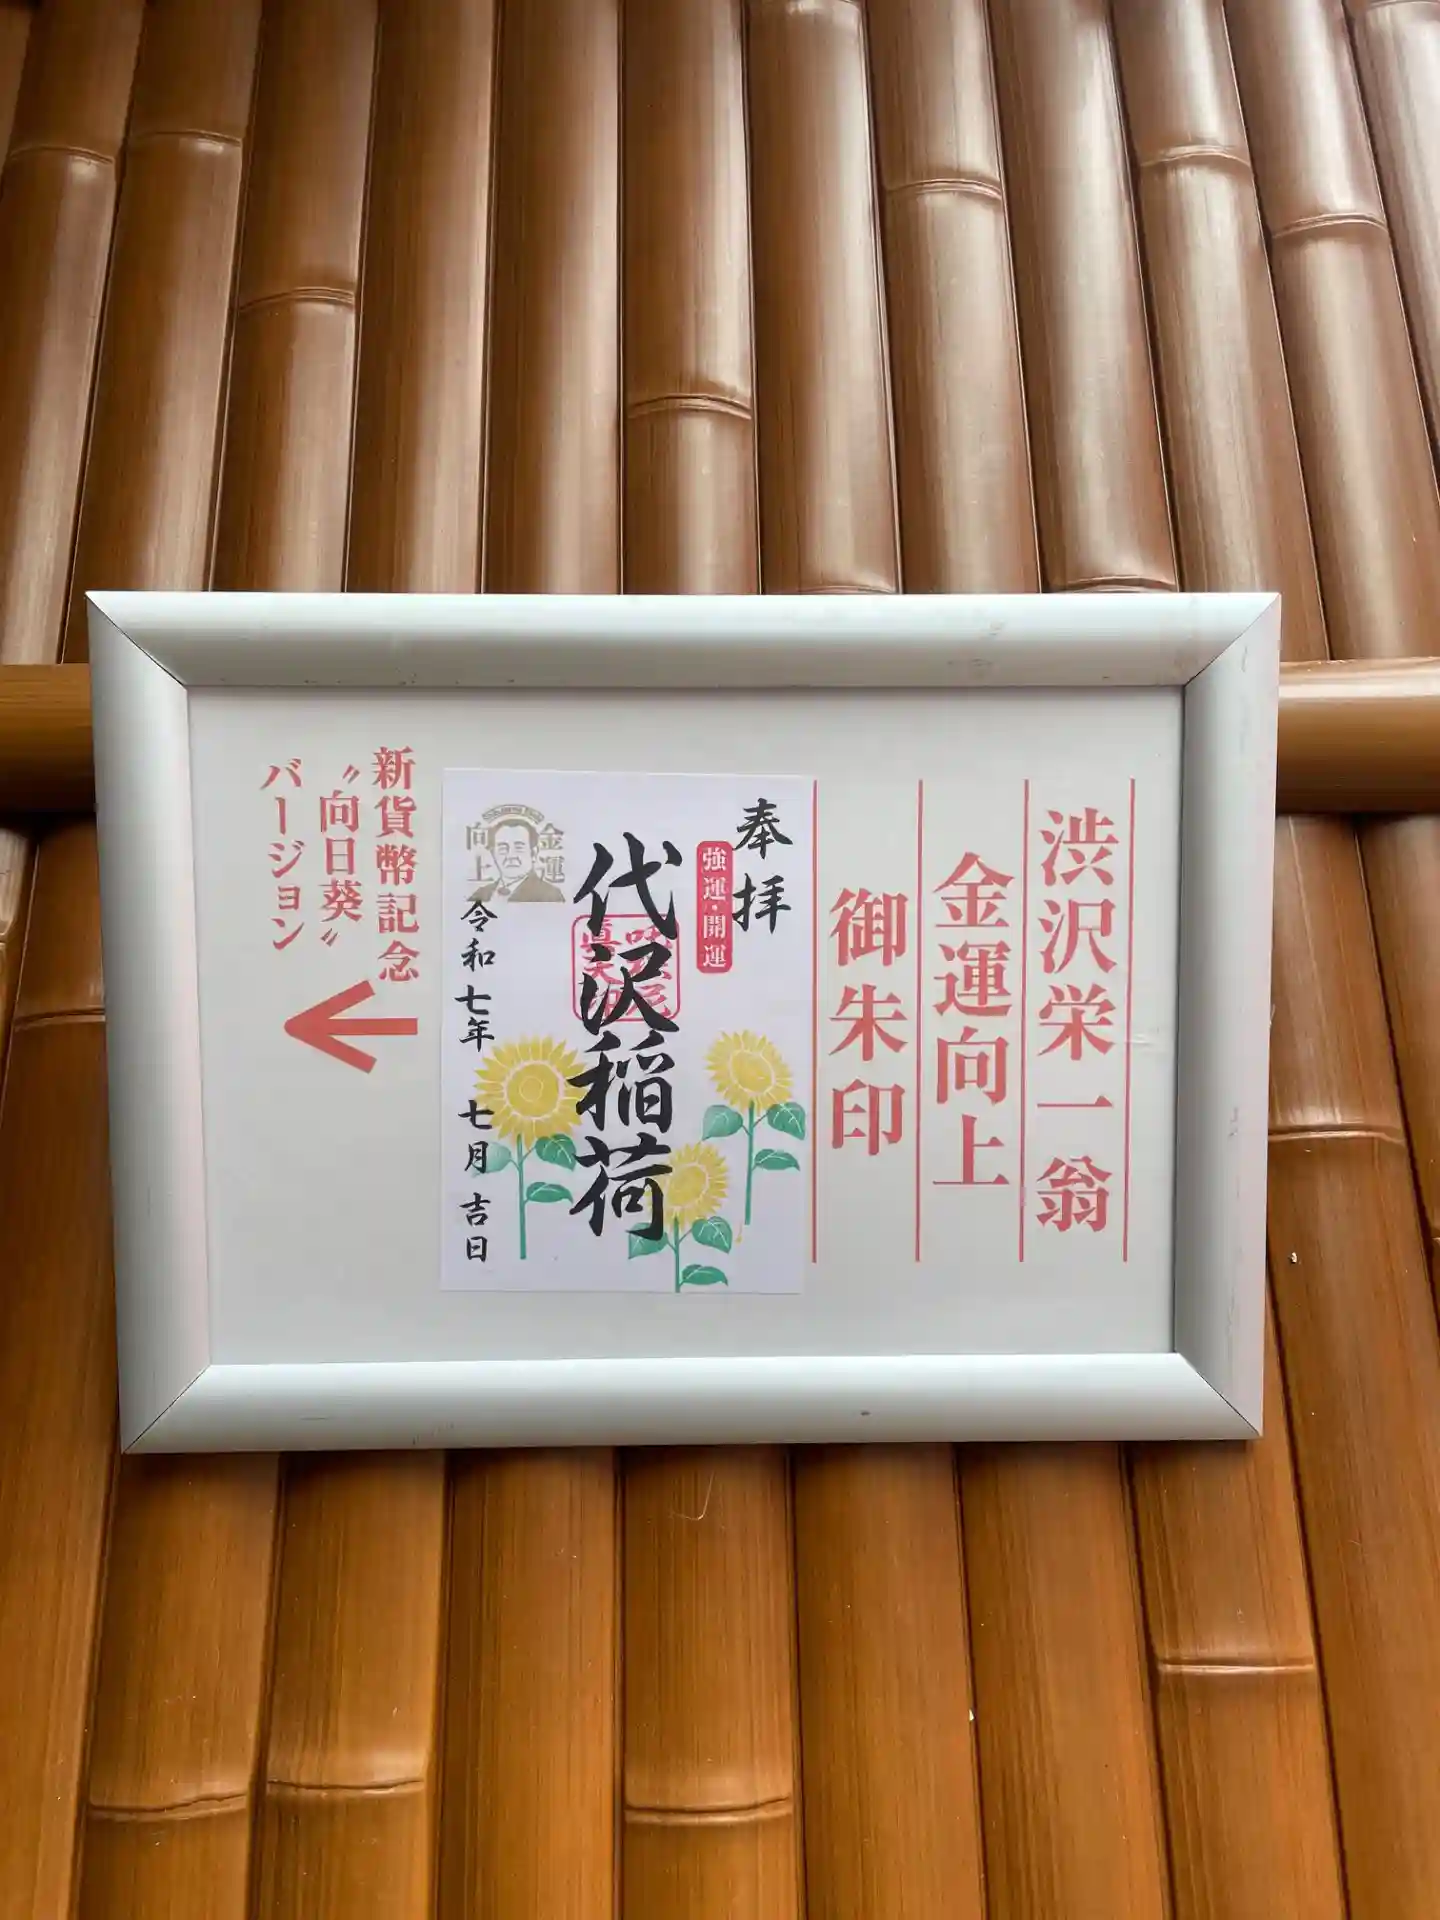 渋沢栄一翁
金運向上
御朱印
奉拝
強運・開運
代沢稲荷
金運
向上
令和七年 七月 吉日
新貨幣記念
〝向日葵〟
バージョン